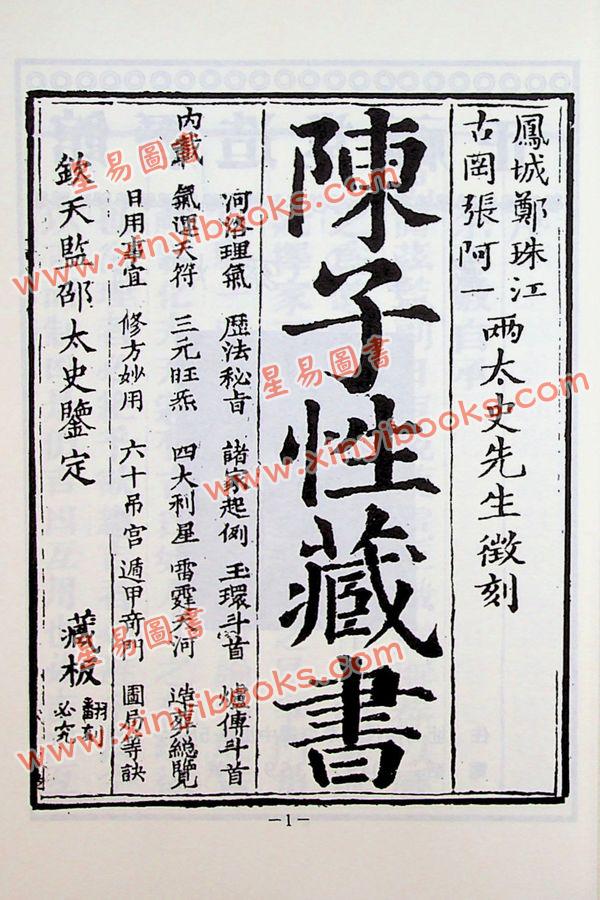 鳳城鄭珠江
古岡張阿一
兩太史先生徵刻
陳子性藏書
內載
河洛理氣 歷法秘旨 諸家起例 玉環斗首 爐傳斗首
氣運天符 三元旺炁 四大利星 雷霆天河 造葬總覽
日用事宜 修方妙用 六十吊宮 遁甲奇門 圖局等訣
欽天監邵太史鑒定
藏板
翻刻
必究
—1—
星易圖書
www.xinyibooks.com
星易圖書
www.xinyibooks.com
星易圖書
www.xinyibooks.com